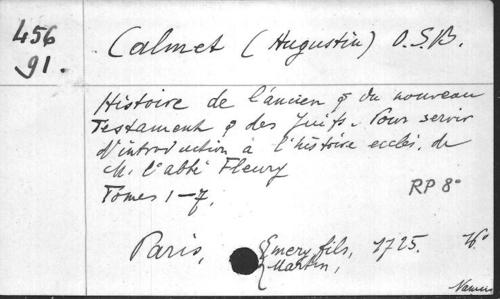 456
91.
Calmet (Augustin) O.S.B.
Histoire de l'ancien & du nouveau
Testament & des Juifs. Pour servir
d'introduction à l'histoire ecclés. de
M. l'abbé Fleury
Tomes 1-7.
RP 8°
Paris, Emery fils, 1725.
Martin,
Namur